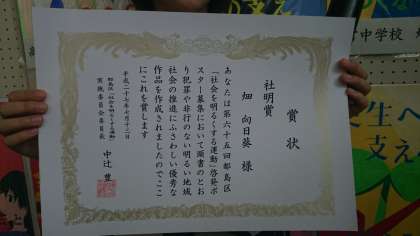 賞状
社明賞
畑 向日葵 様
あなたは第六十五回都島区
「社会を明るくする運動」啓発ポ
スター募集において頭書のとお
り犯罪や非行のない明るい地域
社会の推進にふさわしい優秀な
作品を作成されましたのでここ
にこれを賞します
平成二十七年八月十三日
都島区「社会を明るくする運動」
実施委員会委員長 中辻 豊
中学校
生へ
支え